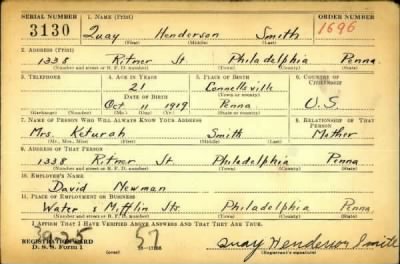 SERIAL NUMBER 1. NAME (Print) ORDER NUMBER
3130 Quay Henderson Smith 1696
(First) (Middle) (Last)
2. ADDRESS (Print)
1338 Ritner St Philadelphia Penna
(Number and street or R. F. D. number) (Town) (County) (State)
3. TELEPHONE 4. AGE IN YEARS 5. PLACE OF BIRTH 6. COUNTRY OF CITIZENSHIP
21 Connellsville
DATE OF BIRTH
Oct 11 1919 Penna U.S.
(Exchange) (Number) (Mo.) (Day) (Yr.) (State or country)
7. NAME OF PERSON WHO WILL ALWAYS KNOW YOUR ADDRESS 8. RELATIONSHIP OF THAT PERSON
Mrs. Keturah Smith Mother
(Mr., Mrs., Miss) (First) (Middle) (Last)
9. ADDRESS OF THAT PERSON
1338 Ritner St Philadelphia Penna
(Number and street or R. F. D. number) (Town) (County) (State)
10. EMPLOYER'S NAME
David Newman
11. PLACE OF EMPLOYMENT OR BUSINESS
Water & Mifflin Sts. Philadelphia Penna
(Number and street or R. F. D. number) (Town) (County) (State)
I AFFIRM THAT I HAVE VERIFIED ABOVE ANSWERS AND THAT THEY ARE TRUE.
REGISTRATION CARD
D. S. S. Form 1 (over) Quay Henderson Smith
(Registrant's signature)